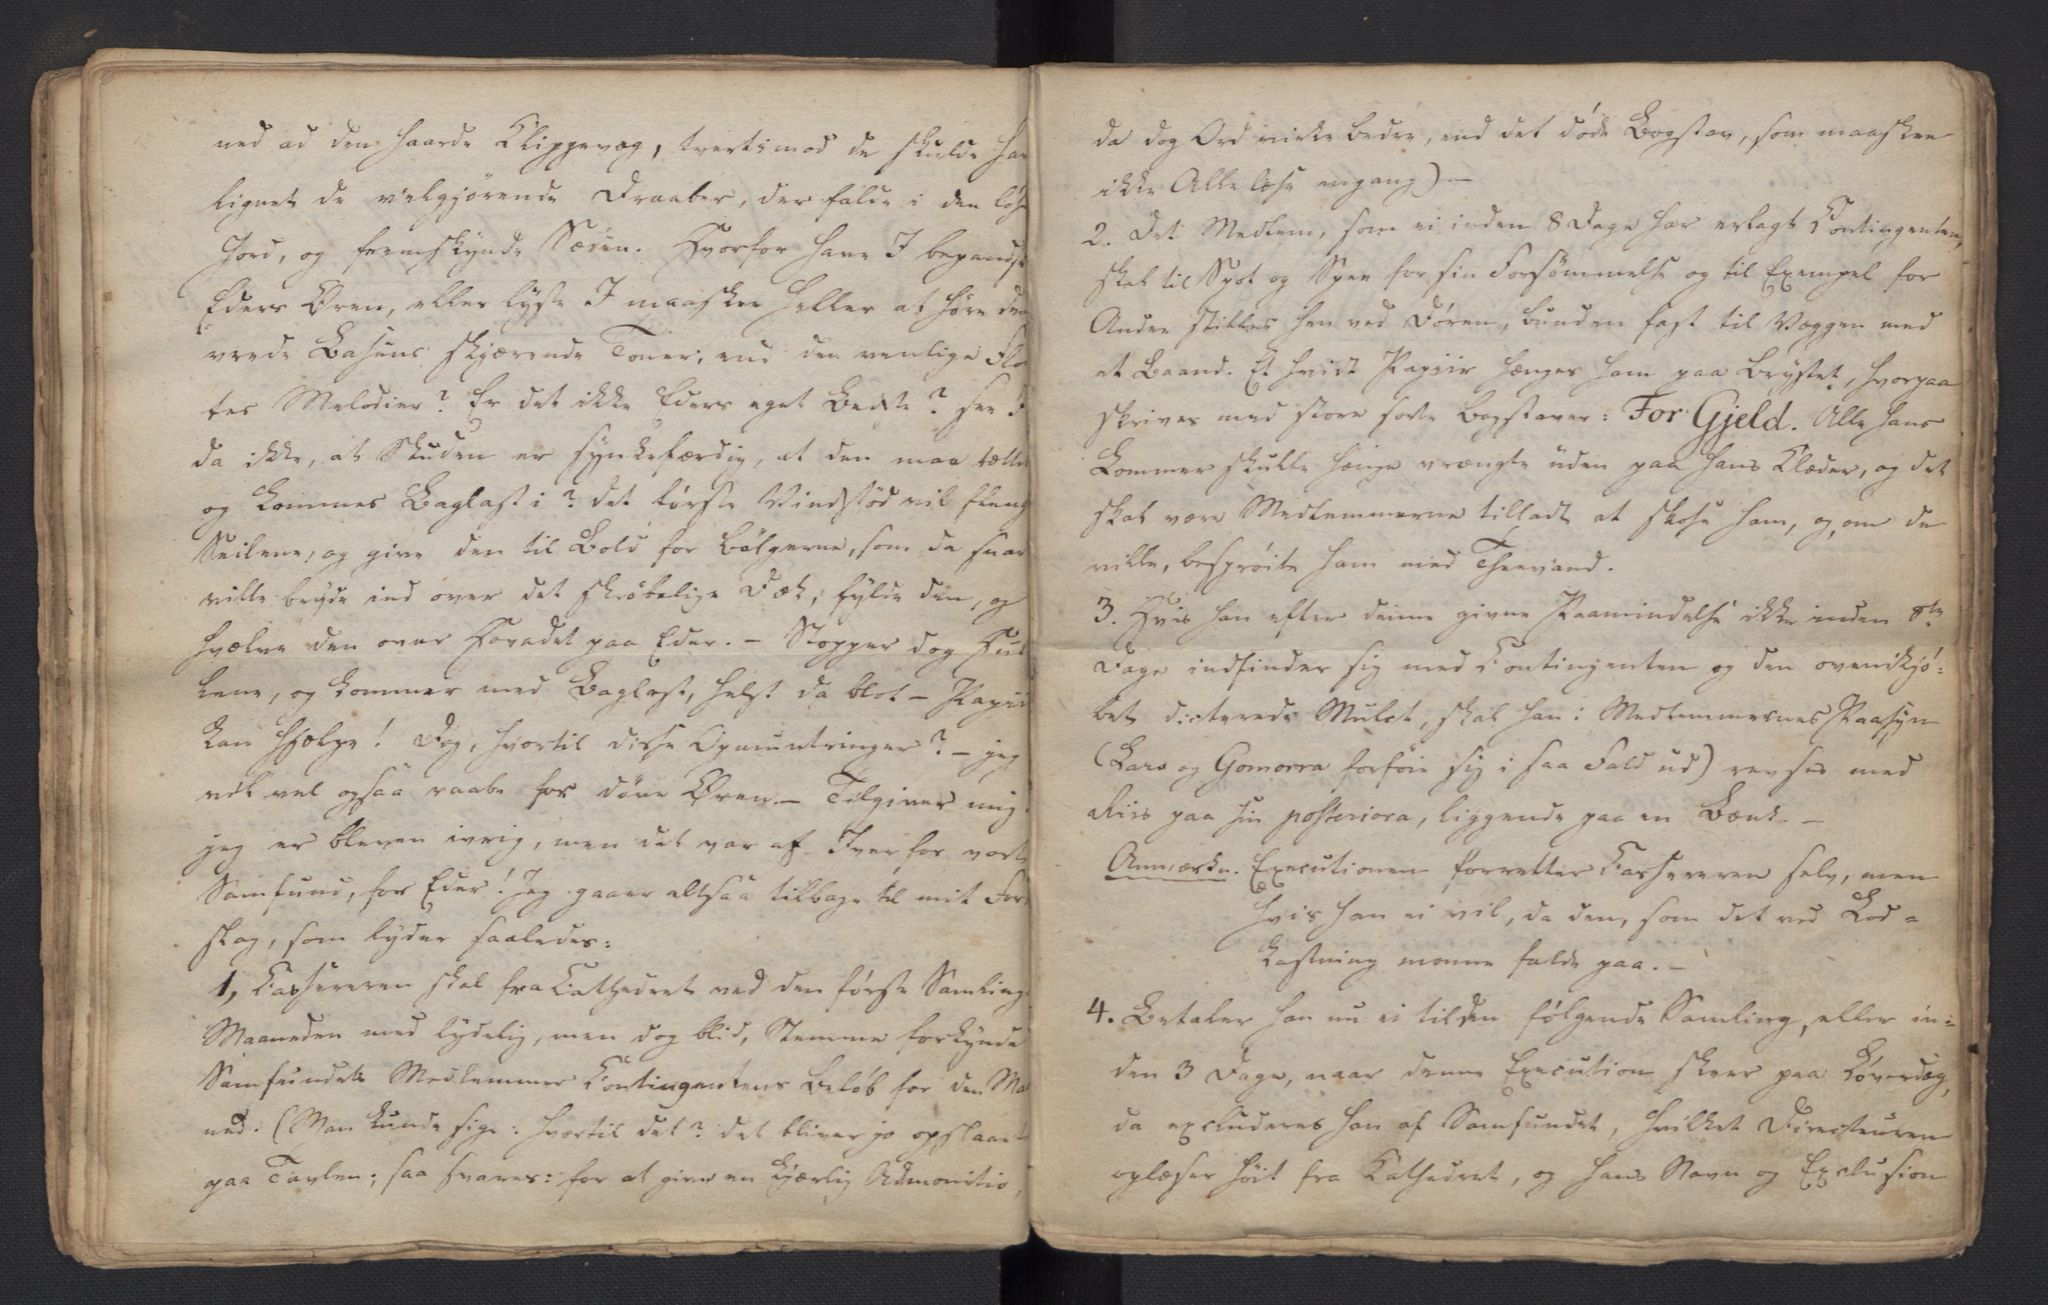 ned ad den haarde Klippevæg, tvertimod de skulde ha
lignet de velgjørende Draaber, der falde i den løse
Jord, og fremskynde Sæden. Hvorfor have I
Eders Øren, eller lyste I maaskee heller at høre den
vrede Basuns skjærende Toner, end den venlige Flö
tes Melodier? Er det ikke Eders eget Bedste? see I
da ikke, at Skuden er synkefærdig, at den maa tættes
og kommes Baglast i? det første Vindstöd vil fleng
Seilene, og give den til Bold for Bölgerne, som da snar
ville bryde ind over det skröbelige Dæk, fylde den, og
hvælve den over Hovedet paa Eder. – Stopper dog Hul
lene, og kommer med Baglast, helst da blot – Papiir
kan hjælpe! Dog, hvortil disse Opmuntringer? – jeg
vil vel ogsaa raabe for döve Øren – Tilgiver mig,
jeg er bleven ivrig, men det var af Iver for vort
Samfund, for Eder! Jeg gaaer altsaa tilbage til mit For
slag, som lyder saaledes:
1, Kassereren skal fra Kathedret ved den første Samling i
Maaneden med lydelig, men dog blid, Stemme forkynde
Samfundets Medlemmer Contingentens Beløb for den Maa
ned. (Man kunde sige: hvortil det? det bliver jo opslaaet
paa Tavlen; saa svares: for at give en kjærlig Admonitio,
da dog Ord virke bedre, end det døde Bogstav, som maaskee
ikke Alle læse engang) –
2. Det Medlem, som ei inden 8 Dage har erlagt Contingenten,
skal til Spot og Spee for sin Forsømmelse og til Exempel for
Andre stilles hen ved Døren, bunden fast til Væggen med
et Baand. Et hvidt Papiir hænges ham paa Brystet, hvorpaa
skrives med store sorte Bogstaver: For Gjeld. Alle hans
Lommer skulle hænge vrængte uden paa hans Klæder, og det
skal være Medlemmerne tilladt at skose ham, og, om de
ville, besprøite ham med Theevand.
3. Hvis han efter denne givne Paamindelse ikke inden 8te
Dage indfinder sig med Contingenten og den ovenikjö-
bet dicterede Mulct, skal han i Medlemmernes Paasyn
(Lars og Gomorra forføie sig i saa Fald ud) revses med
Riis paa sin posteriora, liggende paa en Bænk. –
Anmærkn. Executionen forretter Kassereren selv, men
hvis han ei vil, da den, som det ved Lod-
kastning monne falde paa. –
4. Betaler han nu ei til den følgende Samling, eller in-
den 3 Dage, naar denne Execution skeer paa Løverdag,
da excluderes han af Samfundet, hvilket Directeuren
oplæser høit fra Kathedret, og hans Navn og Exclusion